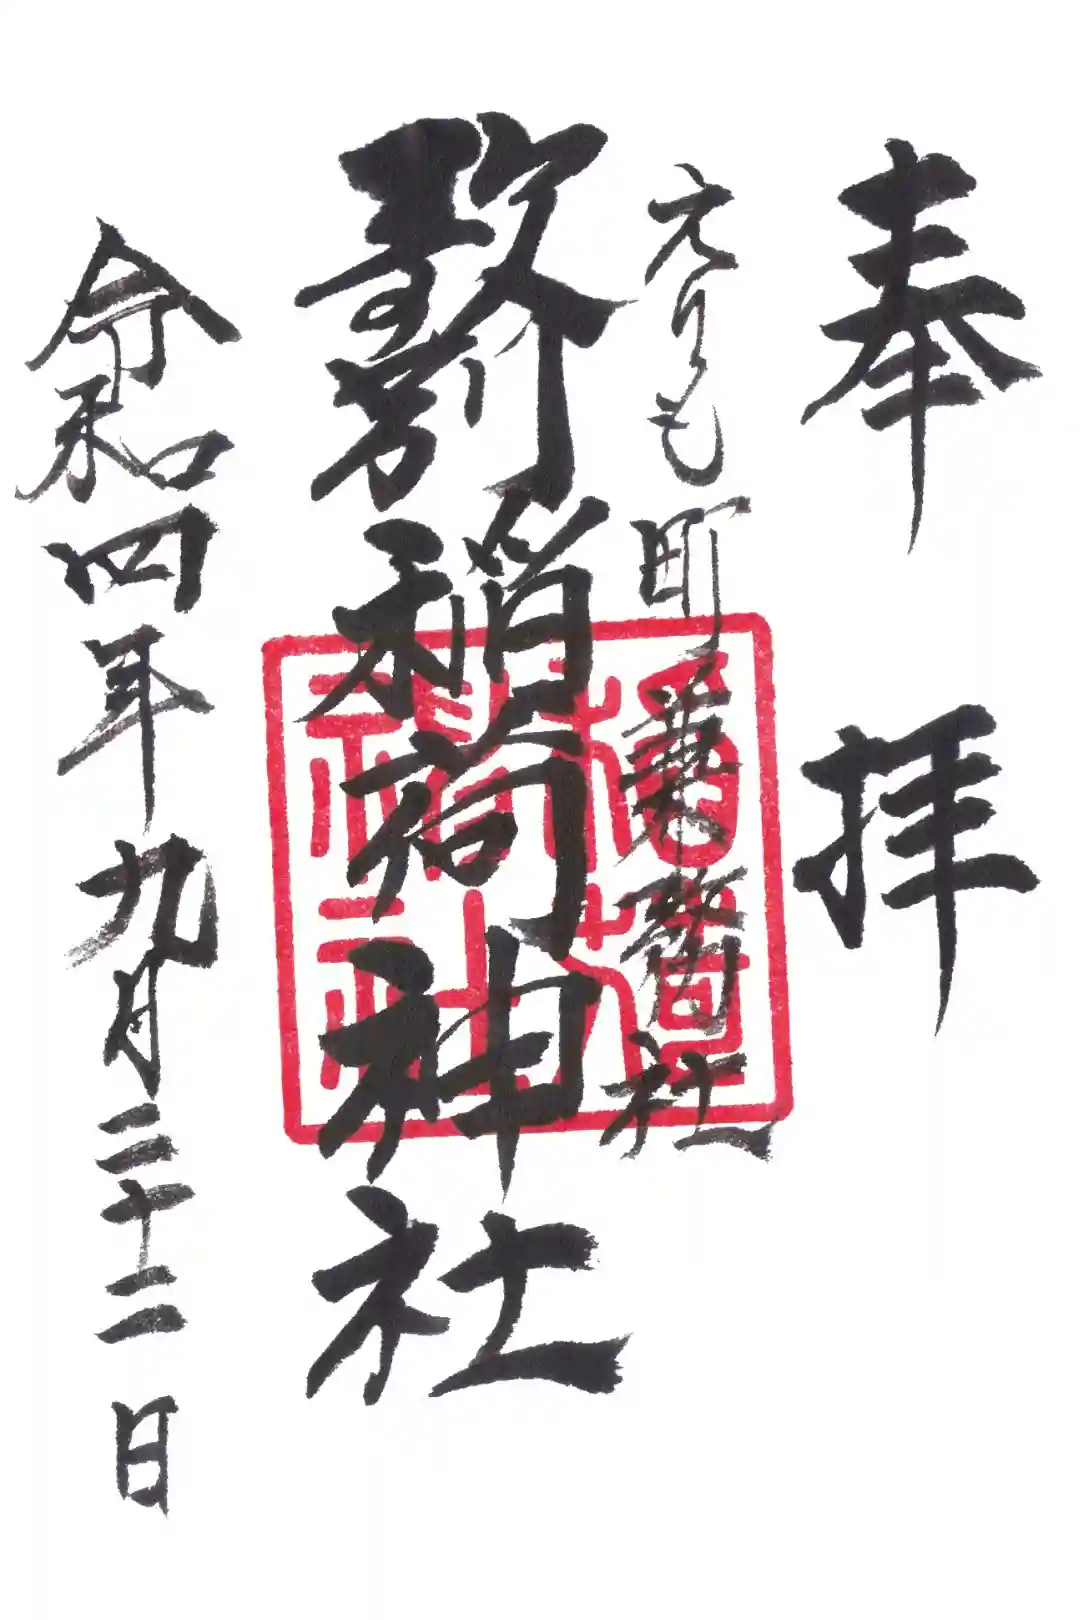 奉拝
えりも町兼務社
歌別稲荷神社
令和四年九月二十二日